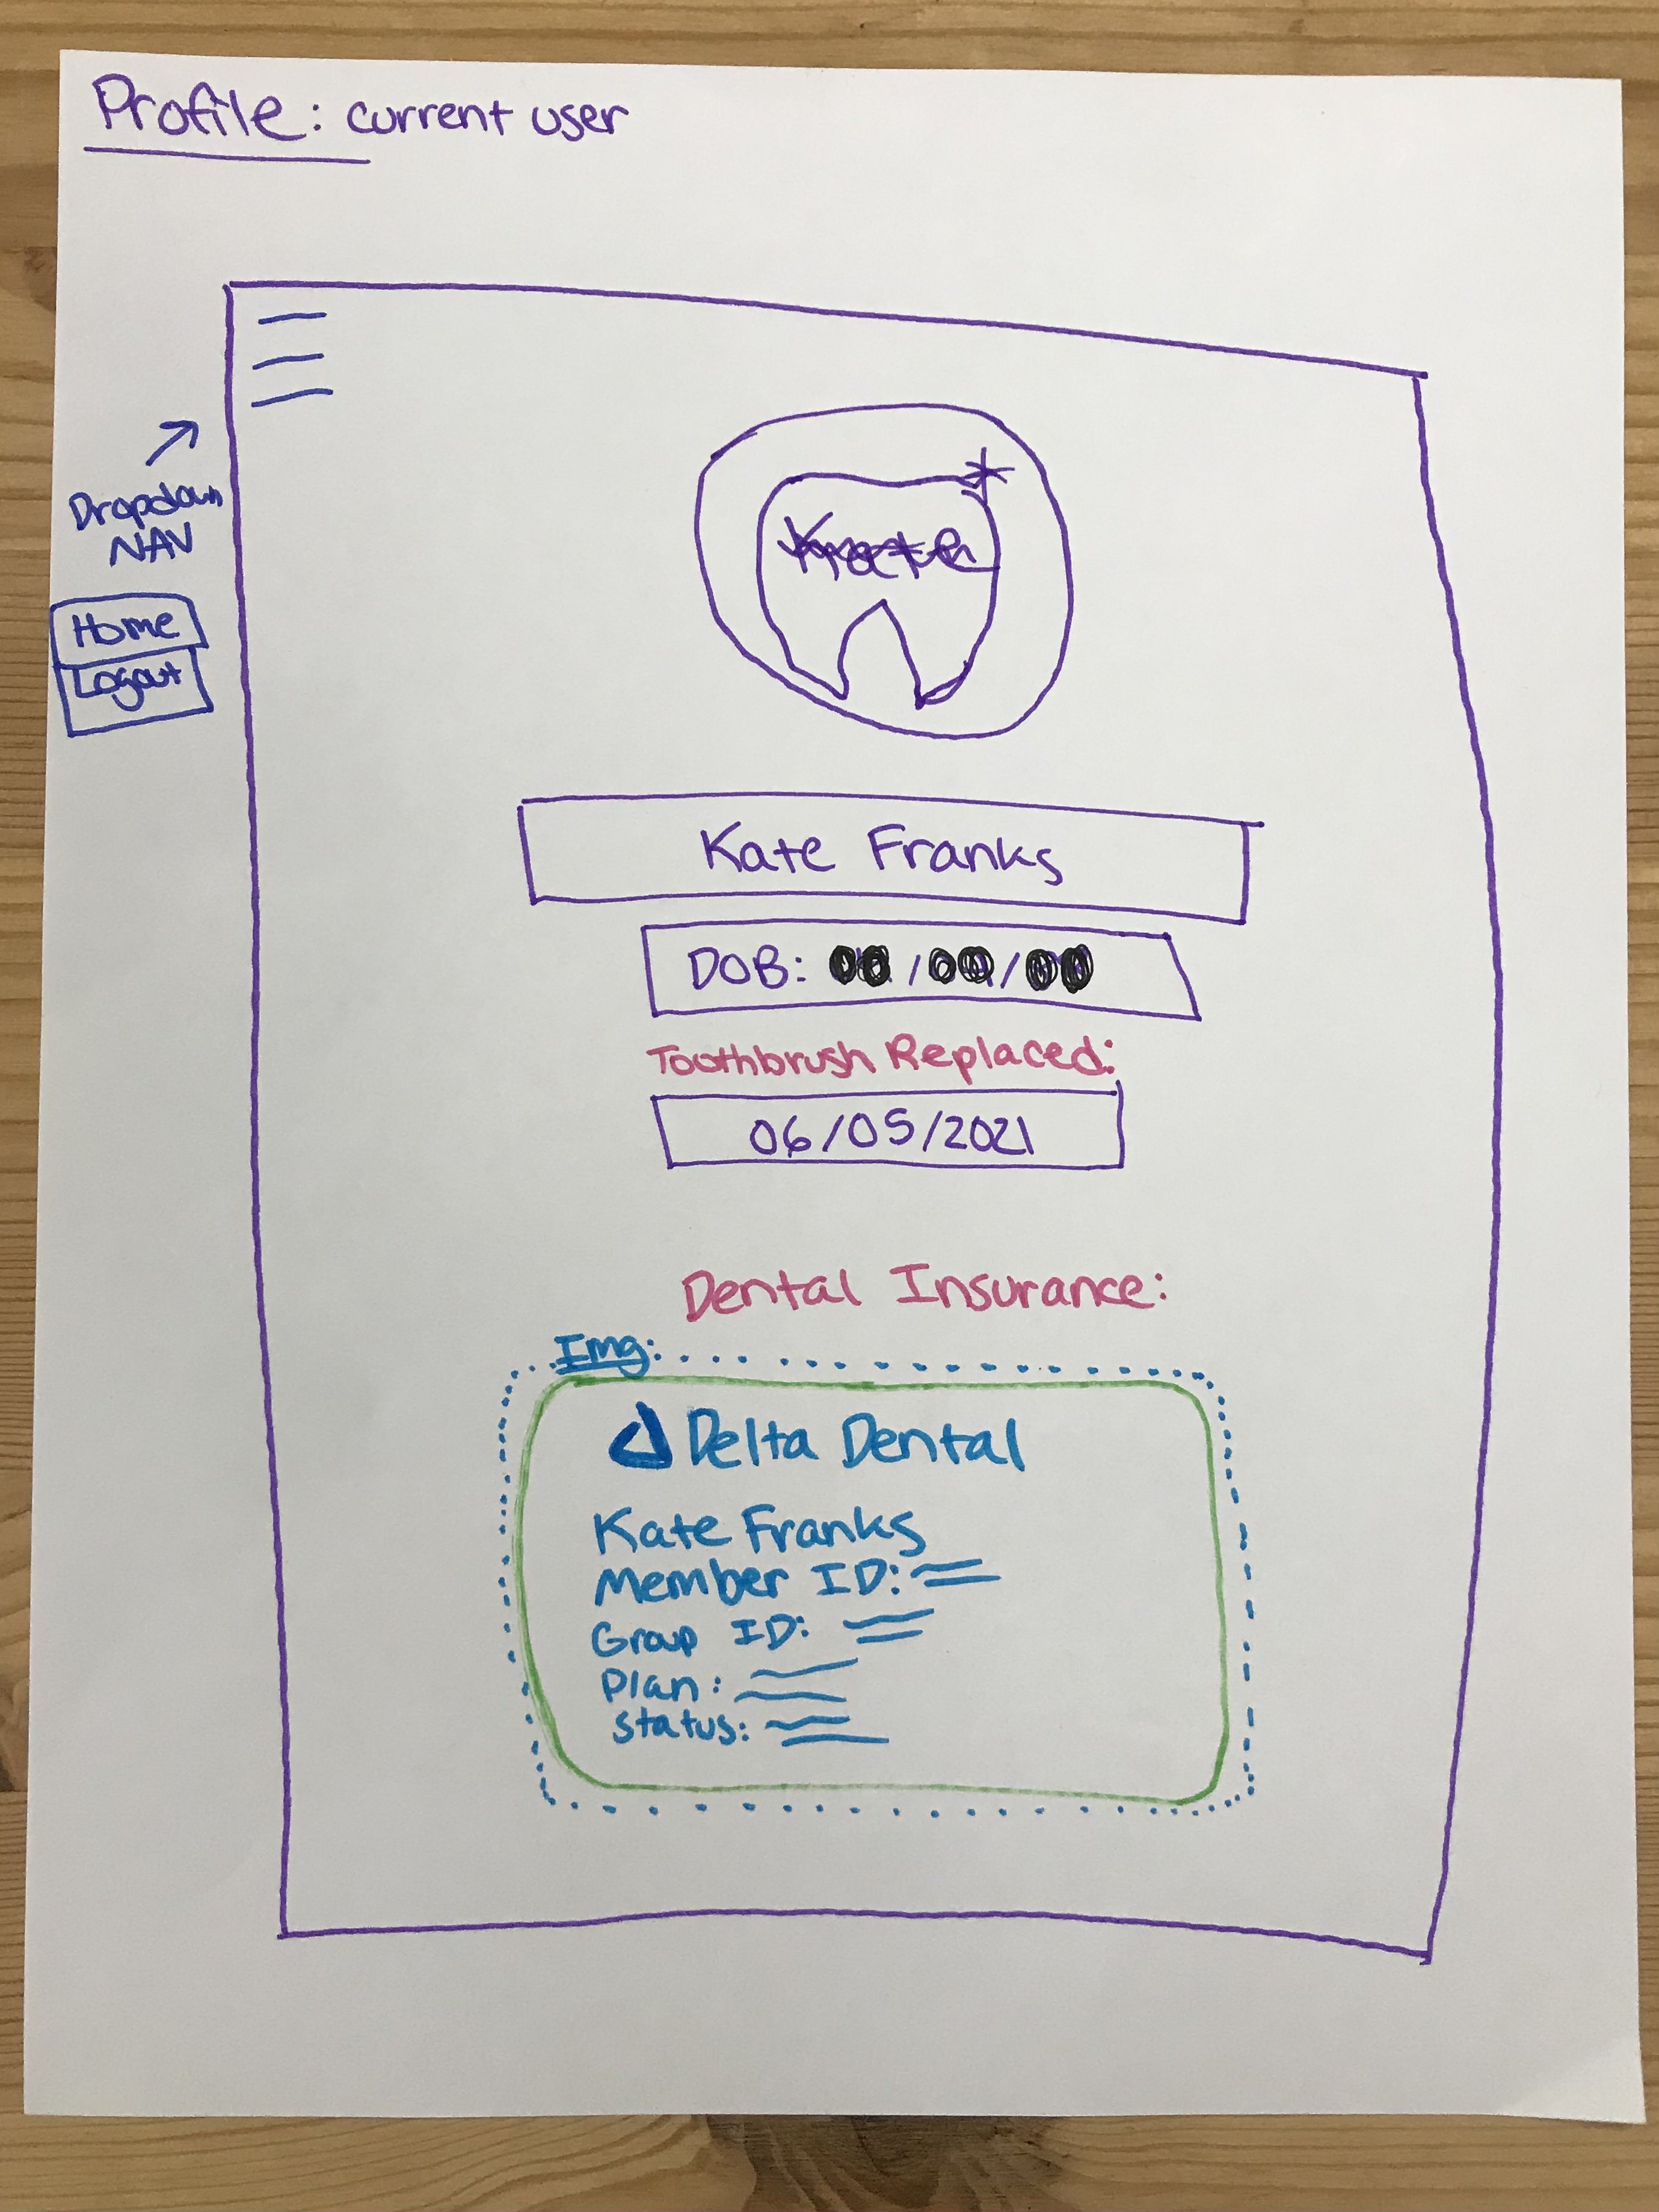 Profile: current user
Dropdown
NAV
Home
Logout
Kate Franks
DOB: / /
Toothbrush Replaced:
06/05/2021
Dental Insurance:
Img:
Delta Dental
Kate Franks
Member ID:
Group ID:
Plan:
Status: